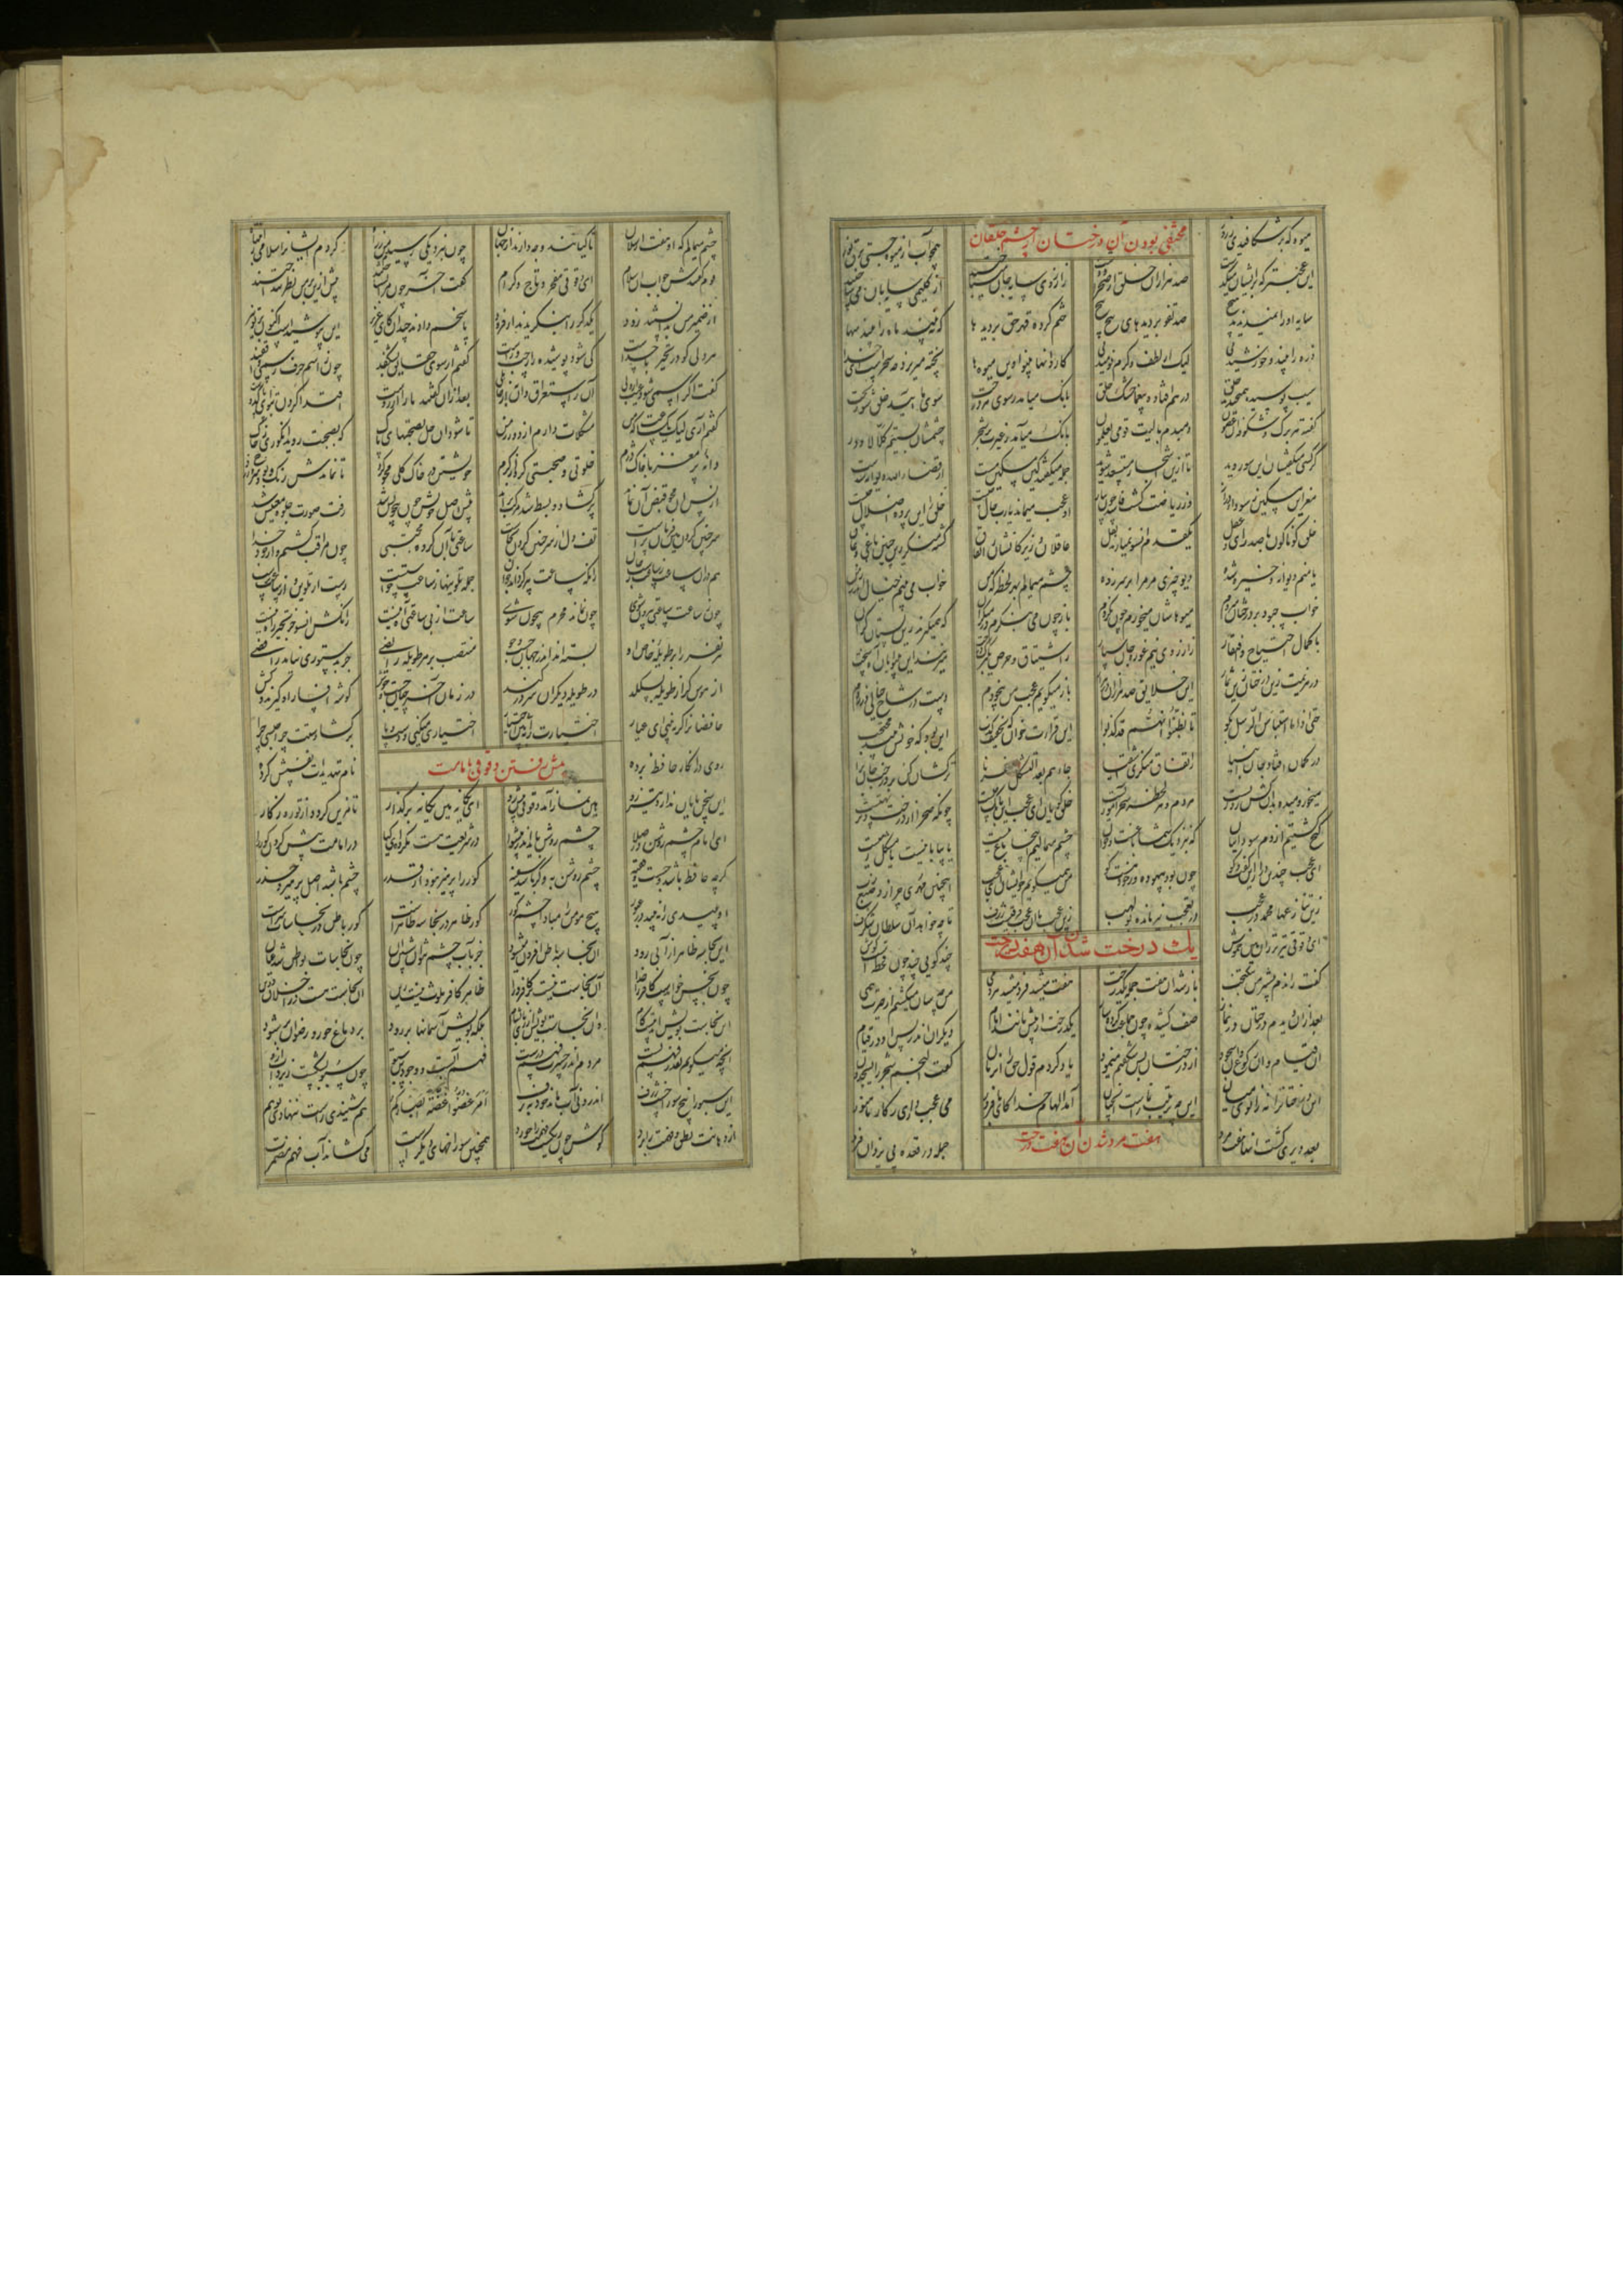 میوه که برشکافیدی ز زور
مخفی بودن آن درختان از چشم خلقان
همچو آب از میوه جستی برق نور
این عجبتر که بریشان میگذشت صد هزاران خلق از صحرا و دشت
زارزوی سایه جان میباختند از گلیمی سایبان میساختند
سایه او را نمیدیدند هیچ صد تفو بر دیدهای پیچ پیچ
ختم کرده قهر حق بر دیدها که نبیند ماه را بیند سها
ذره را بیند و خورشید نی لیک از لطف و کرم نومید نی
کاروانها بینوا وین میوها پخته میریزد چه سحرست ای خدا
سیب پوسیده همیچیدند خلق درهم افتاده بیغما خشک حلق
بانک میامد ز سوی هر درخت سوی ما آیید خلق شوربخت
گفته هر برگ و شکوفه آن غصون دمبدم یا لیت قومی یعلمون
بانک میامد ز غیرت بر شجر چشمشان بستیم کلا لا وزر
گر کسی میگفتشان این سو روید تا ازین اشجار مستسعد شوید
جمله میگفتند کین مسکین مست از قضاء الله دیوانه شدست
مغز این مسکین ز سودای دراز وز ریاضت گشت فاسد چون پیاز
او عجب میماند یا رب حال چیست خلق را این پرده و اضلال چیست
خلق گوناگون با صد رای و عقل یکقدم آنسو نمی آرند نقل
عاقلان و زیرکانشان ز اتفاق گشته منکر زین چنین باغی و عاق
یا منم دیوانه و خیره شده دیو چیزی مر مرا بر سر زده
چشم میمالم بهر لحظه که من خواب می بینم خیال اندر زمن
خواب چبود بر درختان میروم میوهاشان میخورم چون نگروم
باز چون می بنگرم در منکران که همیگیرند زین بستان کران
با کمال احتیاج و افتقار زارزوی نیم غوره جان سپار
ز اشتیاق و حرص یک برگ درخت میزنند این بینوایان آه سخت
در هزیمت زین درختان زین ثمار این خلایق صد هزار اندر هزار
باز میگویم عجب من بیخودم دست در شاخ خیالی در زدم
حتی اذا ما استیأس الرسل بگو تا بظنوا انهم قد کذبوا
این قراءت خوان که تخفیف کذب این بود که خویش بیند محتجب
در گمان افتاد جان انبیا ز اتفاق منکری اشقیا
جاءهم بعد التشکک نصرنا ترکشان کن بر درخت جان برا
میخور و میده بدان کش روزیست هر دم و هر لحظه سحرآموزیست
خلق گویان ای عجب این بانک چیست چونکه صحرا از درخت و بر تهیست
گیج گشتیم از دم سوداییان که بنزدیک شما باغست و خوان
چشم میمالیم اینجا باغ نیست یا بیابانیست یا مشکل رهیست
ای عجب چندین دراز این گفت و گو چون بود بیهوده ور خود هست کو
من همیگویم چو ایشان ای عجب اینچنین مهری چرا زد صنع رب
زین تنازعها محمد در عجب در تعجب نیز مانده بولهب
زین عجب تا آن عجب فرقیست ژرف تا چه خواهد آن سلطان شگرف
ای دقوقی تیزتر ران هین خموش
یک درخت شدن آن هفت درخت
چند گویی چند چون قحطست گوش
گفت راندم پیشتر من نیکبخت باز شد آن هفت جمله یک درخت
هفت میشد فرد میشد هر دمی من چه سان میگشتم از حیرت همی
بعد از آن دیدم درختان در نماز صف کشیده چون جماعت کرده ساز
یکدرخت از پیش مانند امام دیگران اندر پس او در قیام
آن قیام و آن رکوع و آن سجود از درختان بس شگفتم مینمود
یاد کردم قول حق را آن زمان گفت النجم و شجر را یسجدان
این درختانرا نه زانو نه میان این چه ترتیب نمازست آنچنان
آمد الهام خدا کای بافروز می عجب داری ز کار ما هنوز
بعد دیری گشت آنها هفت مرد
هفت مرد شدن آن هفت درخت
جمله در قعده پی یزدان فرد
چشم میمالم که آن هفت ارسلان تا کیانند و چه دارند از جهان
چون بنزدیکی رسیدم من ز راه کردم ایشانرا سلام از انتباه
قوم گفتندش جواب آن سلام ای دقوقی مفخر و تاج کرام
گفتم آخر چون مرا بشناختند پیش ازین بر من نظر ننداختند
از ضمیر من بدانستند زود یکدگر را بنگریدند از فرود
پاسخم دادند خندان کای عزیز این بپوشیدست اکنون بر تو نیز
بر دلی کو در تحیر با خداست کی شود پوشیده راز چپ و راست
گفتم ار سوی حقایق بشکفند چون ز اسم حرف رسمی واقفند
گفت اگر اسمی شود غیب از ولی آن ز استغراق دان نز جاهلی
بعد از آن گفتند ما را آرزوست اقتدا کردن بتو ای پاک دوست
گفتم آری لیک یک ساعت که من مشکلات دارم از دور زمن
تا شود آن حل بصحبتهای پاک که بصحبت روید انگوری ز خاک
دانه پر مغز با خاک دژم خلوتی و صحبتی کرد از کرم
خویشتن در خاک کلی محو کرد تا نماندش رنگ و بو و سرخ و زرد
از پس آن محو قبض آن نماند پر گشاد و بسط شد مرکب براند
پیش اصل خویش چون بی خویش شد رفت صورت جلوه معنیش شد
سر چنین کردند هین فرمان تراست تف دل از سر چنین کردن بخاست
ساعتی با آن گروه مجتبی چون مراقب گشتم و از خود جدا
هم در آن ساعت ز ساعت رست جان زانکه ساعت پیر گرداند جوان
جمله تلوینها ز ساعت خاستست رست از تلوین که از ساعت برست
چون ز ساعت ساعتی بیرون شوی چون نماند محرم بیچون شوی
ساعت از بی ساعتی آگاه نیست زانکش آنسو جز تحیر راه نیست
هر نفر را بر طویله خاص او بسته اند اندر جهان جست و جو
منتصب بر هر طویله رایضی جز بدستوری نیاید رافضی
از هوس گر از طویله بگسلد در طویله دیگران سر در کند
در زمان آخرجیان چست خوش گوشه افسار او گیرند و کش
حافظانرا گر نبینی ای عیار اختیارت را ببین بی اختیار
اختیاری میکنی و دست و پا بر گشادستت چرا حبسی چرا
روی در انکار حافظ برده
پیش رفتن دقوقی بامامت
نام تهدیدات نفسش کرده
این سخن پایان ندارد تیز رو هین نماز آمد دقوقی پیش رو
ای یگانه هین یگانه بر گذار تا مزین گردد از تو روزگار
ای امام چشم روشن در صلا چشم روشن باید اندر پیشوا
در شریعت هست مکروه ای کیا در امامت پیش کردن کور را
گرچه حافظ باشد و چست و فقیه چشم روشن به وگر باشد سفیه
کور را پرهیز نبود از قذر چشم باشد اصل پرهیز و حذر
او پلیدی را نبیند در عبور هیچ مومن را مبادا چشم کور
کور ظاهر در نجاسه ظاهرست کور باطن در نجاسات سرست
این نجاسه ظاهر از آبی رود آن نجاسه باطن افزون میشود
جز بآب چشم نتوان شستن آن چون نجاسات بواطن شد عیان
چون نجس خواندست کافر را خدا آن نجاست نیست بر ظاهر ورا
ظاهر کافر ملوث نیست زین آن نجاست هست در اخلاق و دین
این نجاست بویش آید بیست گام وان نجاست بویش از ری تا بشام
بلکه بویش آسمانها بر رود بر دماغ حور و رضوان بر شود
انچه میگویم بقدر فهم تست مردم اندر حسرت فهم درست
فهم آبست و وجود تن سبو چون سبو بشکست ریزد آب ازو
این سبو را پنج سوراخست ژرف اندرو نی آب ماند خود نه برف
امر غضوا غضة ابصارکم هم شنیدی راست ننهادی تو سم
از دهانت نطق فهمت را برد گوش چون ریگست فهمت را خورد
همچنین سوراخهای دیگرت می کشاند آب فهم مضمرت